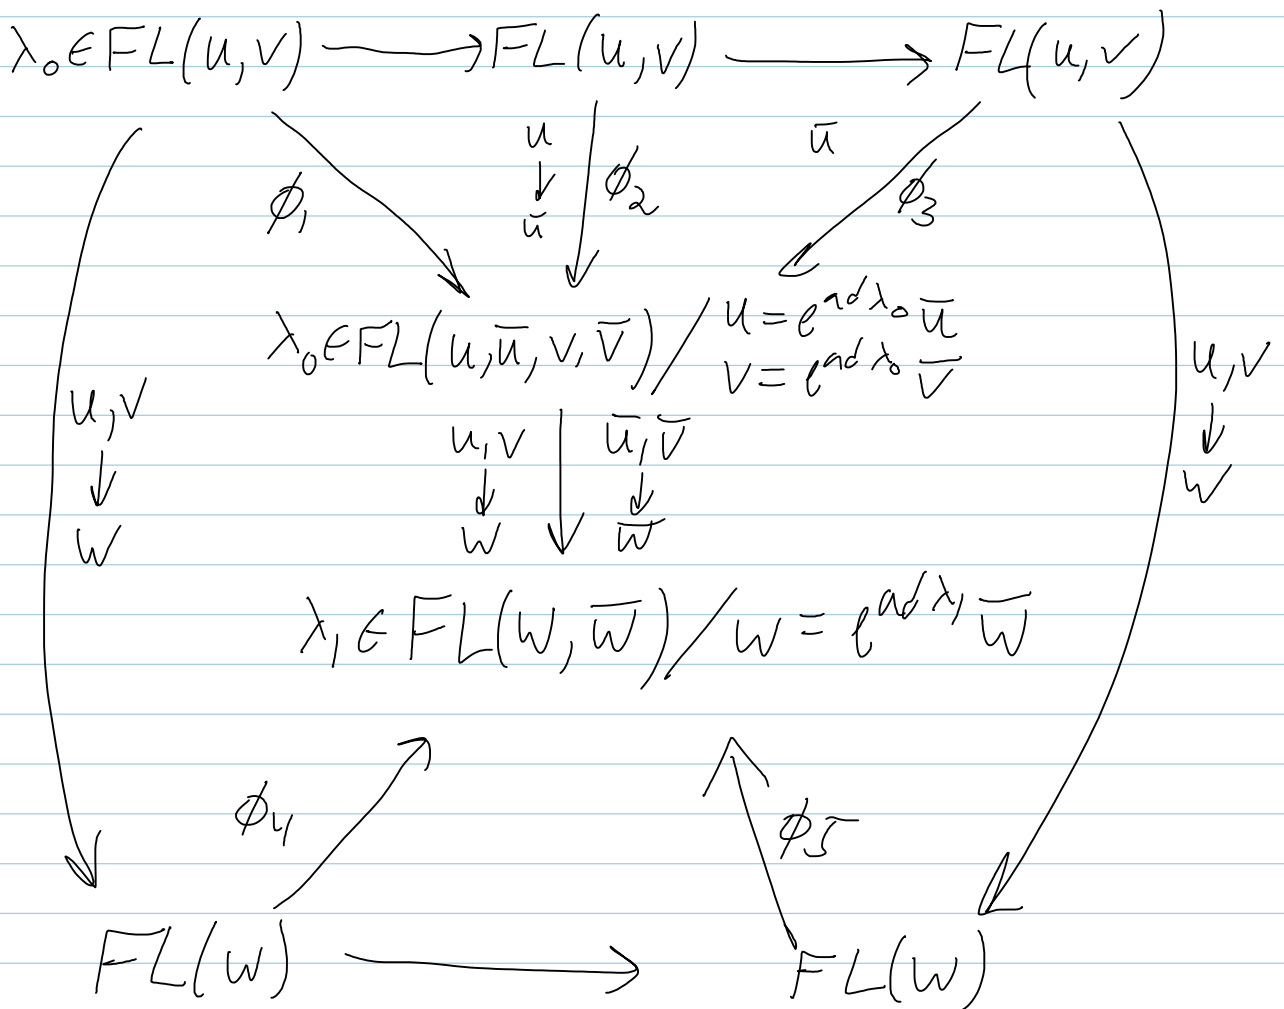 λ₀ ∈ FL(u,v) → FL(u,v) → FL(u,v)
u ū
↓
ū
ϕ₁ ϕ₂ ϕ₃
λ₀ ∈ FL(u,ū,v,v̄) / u = e^{ad λ₀} ū
v = e^{ad λ₀} v̄
u,v u,v ū,v̄ u,v
↓ ↓ ↓ ↓
w w w̄ w
λ₁ ∈ FL(w,w̄) / w = e^{ad λ₁} w̄
ϕ₄ ϕ₅
FL(w) → FL(w)